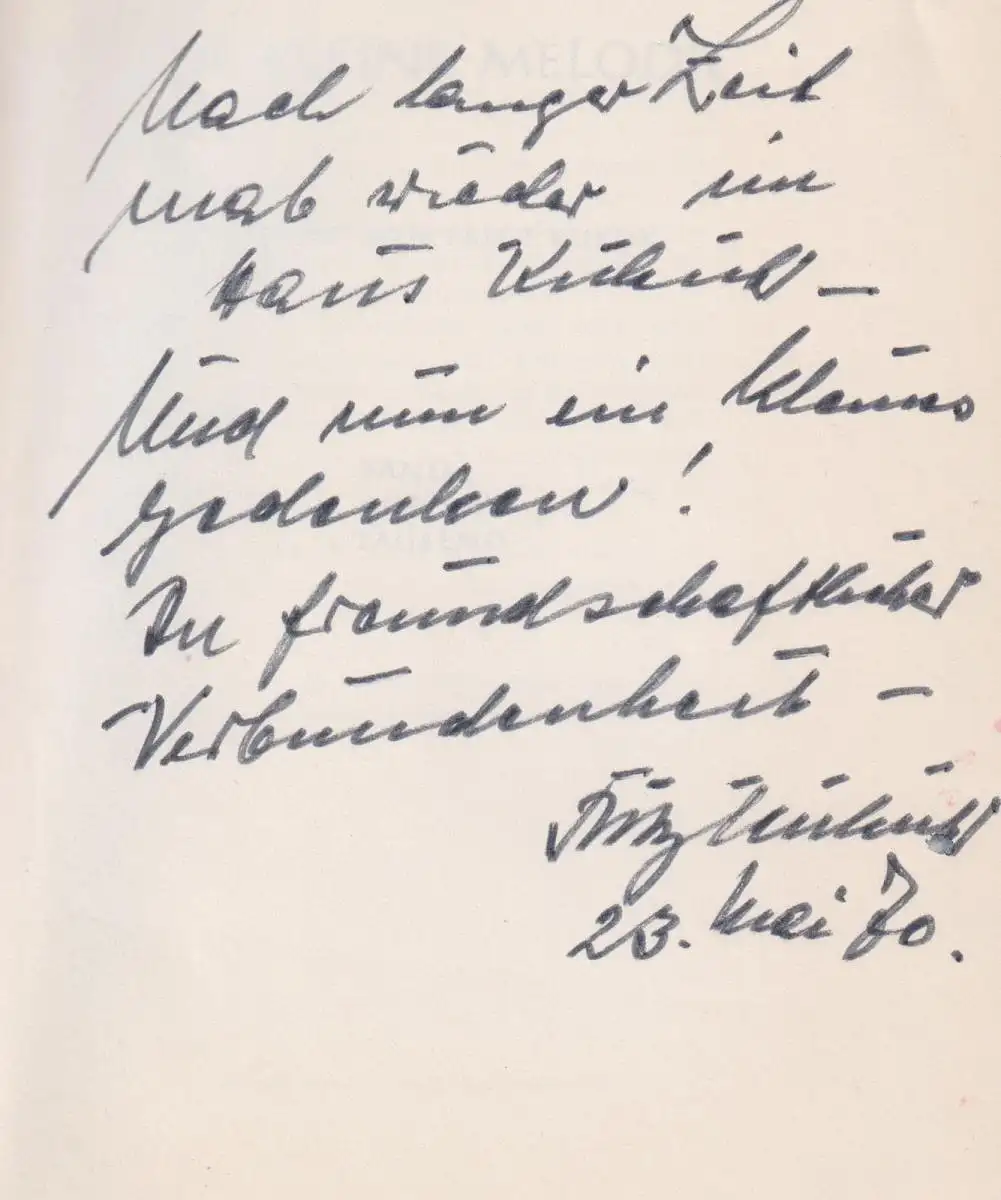 Nach langer Zeit
mal wieder im
Haus –
Und nun ein kleines
gedenken!
In freundschaftlicher
Verbundenheit –
Fritz
23. Mai 70.